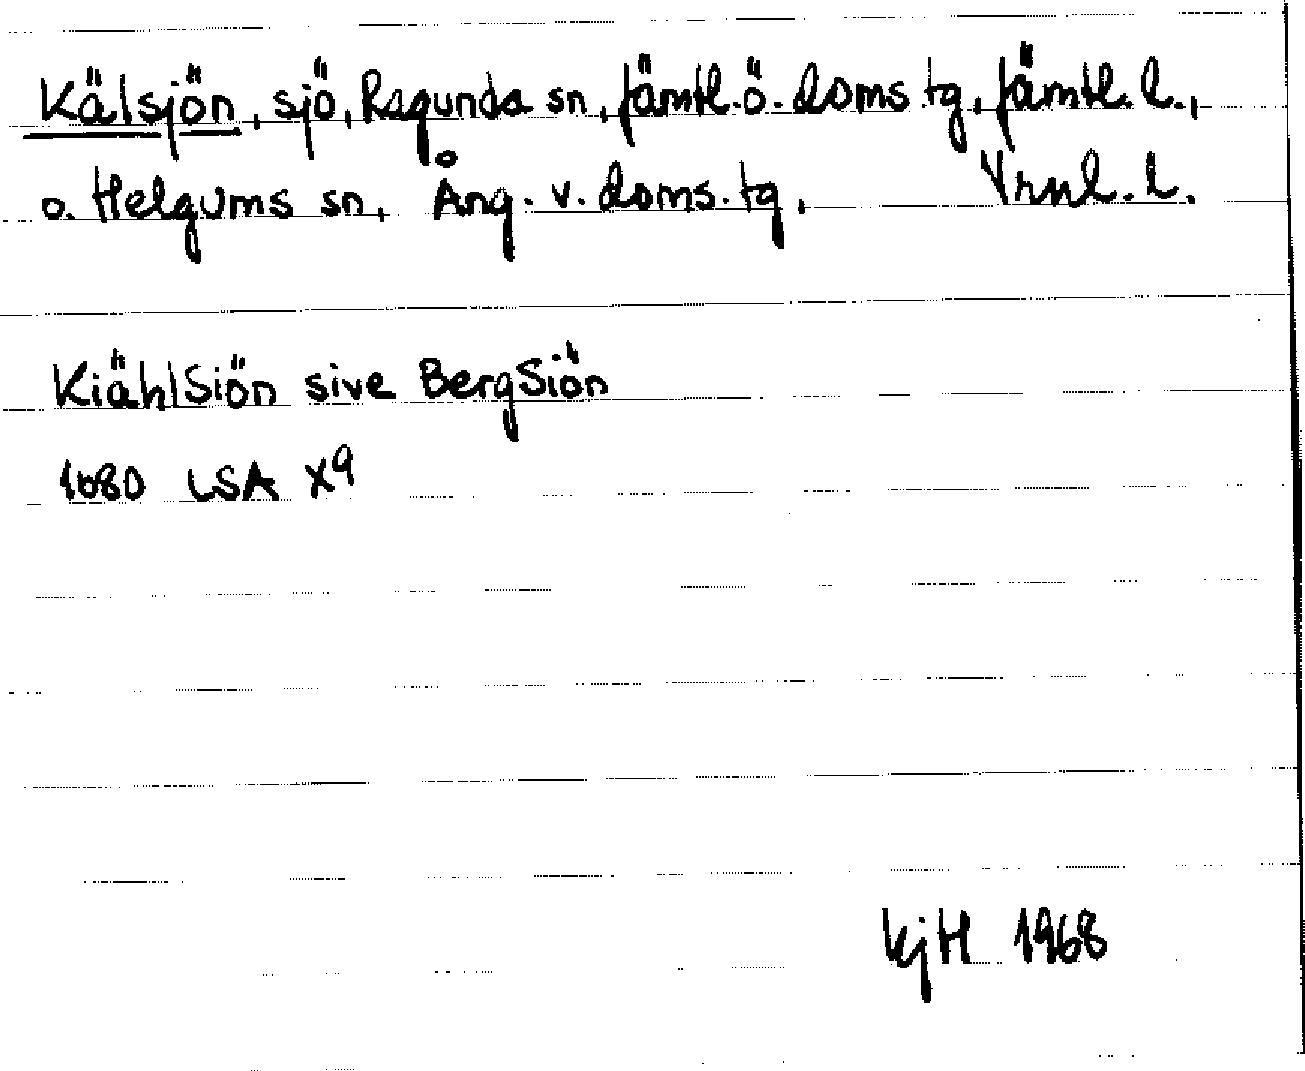 Kälsjön, sjö, Ragunda sn, Jämtl. ö. doms.tg, Jämtl. l.,
o. Helgums sn, Ång. v. doms. tg, Vrnl. l.
KiählSiön sive BergSiön
1680 LSA X9
KjH 1968